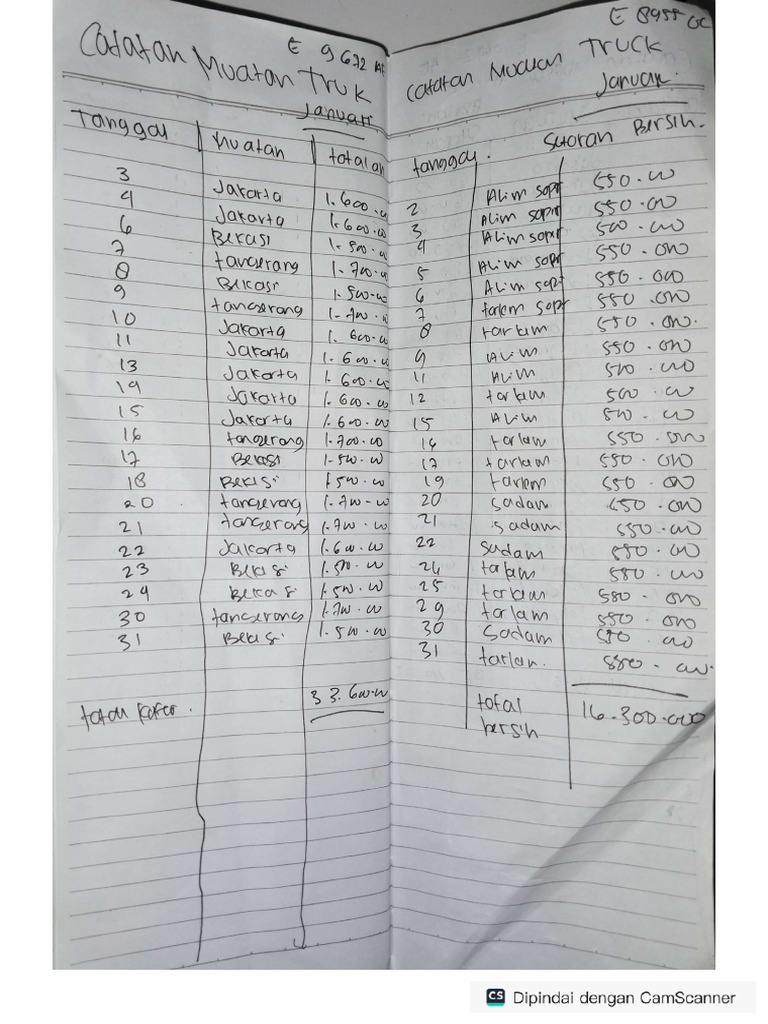 E 9672 AF
Catatan Muatan Truk
Januari
Tanggal muatan totalan
3 Jakarta 1.600.00
4 Jakarta 1.600.00
6 Bekasi 1.500.00
7 tangerang 1.700.00
8 Bekasi 1.500.00
9 tangerang 1.700.00
10 Jakarta 1.600.00
11 Jakarta 1.600.00
13 Jakarta 1.600.00
14 Jakarta 1.600.00
15 Jakarta 1.600.00
16 tangerang 1.700.00
17 Bekasi 1.500.00
18 Bekasi 1.500.00
20 tangerang 1.700.00
21 tangerang 1.700.00
22 Jakarta 1.600.00
23 Bekasi 1.500.00
24 Bekasi 1.500.00
30 tangerang 1.700.00
31 Bekasi 1.500.00
total kotor. 33.600.00
E 8955
Catatan Muatan TRUCK
Januari.
tanggal. Suoran Bersih.
2 Alim sopir 550.00
3 Alim sopir 550.000
4 Alim sopir 500.000
5 Alim sopir 550.000
6 Alim sopir 550.000
7 tarlam sopir 550.000
8 tarlam 550.000.
9 Alim 550.000
11 Alim 500.000
12 tarlam 500.00
15 Alim 500.00
16 tarlam 550.000
17 tarlam 550.000
19 tarlam 550.00
20 sadam 550.000
21 sadam 550.000
22 sadam 550.00
24 tarlam 550.000
25 tarlam 550.000
29 tarlam 550.000
30 Sadam 550.000
31 tarlam. 550.000.
total bersih 16.300.000
CS Dipindai dengan CamScanner